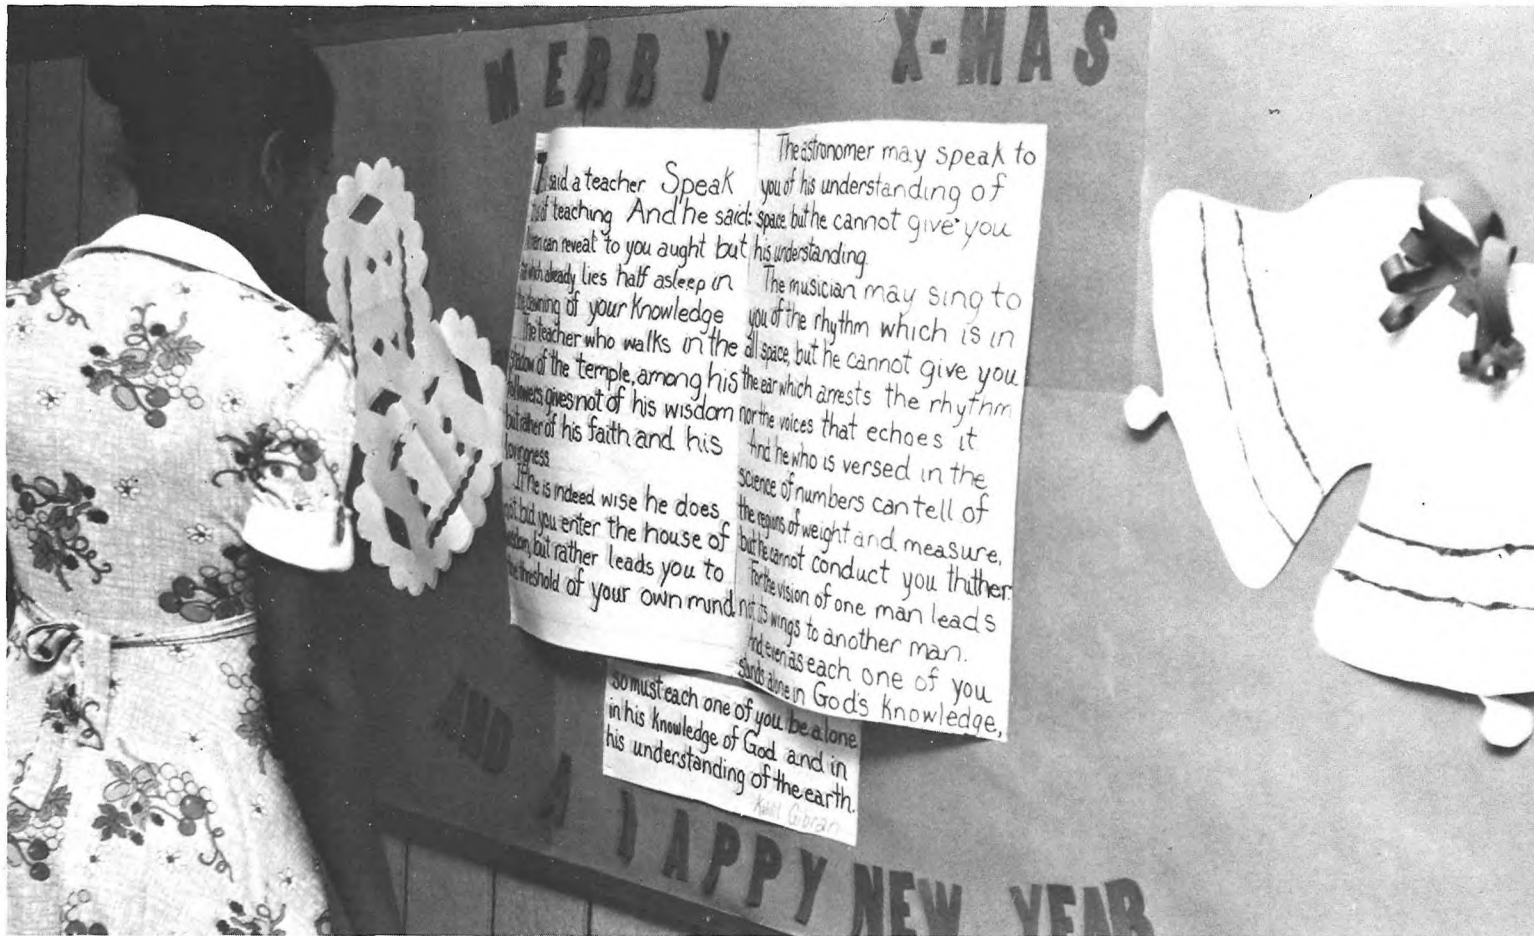 MERRY X-MAS
said a teacher Speak
of teaching And he said:
can reveal to you aught but
that which already lies half asleep in
the dawning of your knowledge
The teacher who walks in the
shadow of the temple, among his
followers, gives not of his wisdom
but rather of his faith and his
lovingness
If he is indeed wise he does
not bid you enter the house of
wisdom, but rather leads you to
the threshold of your own mind
The astronomer may speak to
you of his understanding of
space but he cannot give you
his understanding
The musician may sing to
you of the rhythm which is in
all space, but he cannot give you
the ear which arrests the rhythm
nor the voices that echoes it
And he who is versed in the
science of numbers can tell of
the regions of weight and measure,
but he cannot conduct you thither.
For the vision of one man leads
not its wings to another man.
And even as each one of you
stands alone in God's knowledge,
so must each one of you be alone
in his knowledge of God and in
his understanding of the earth.
Kahlil Gibran
AND A HAPPY NEW YEAR